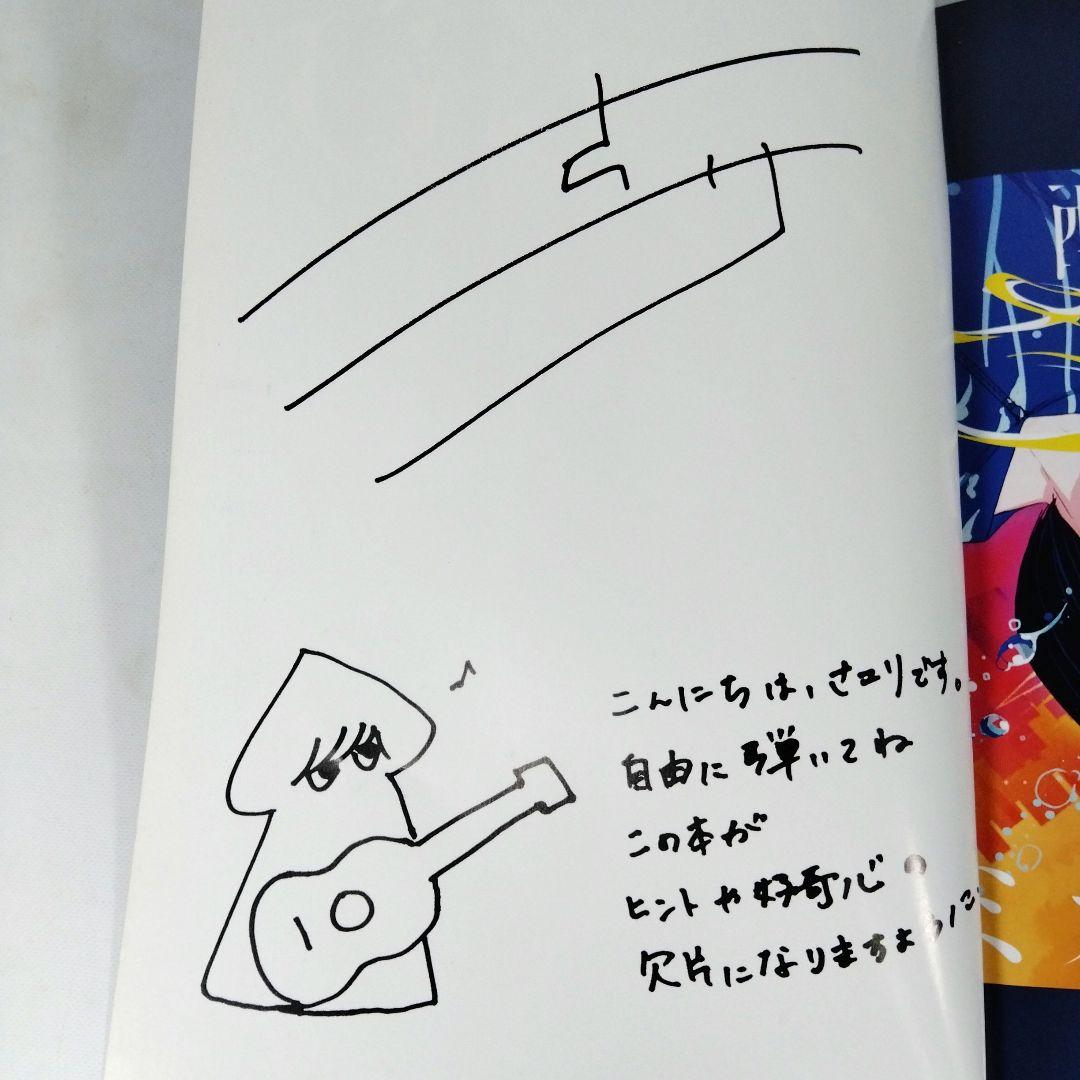 こんにちは、さユリです。
自由に弾いてね
この本が
ヒントや好奇心の
欠片になりますように